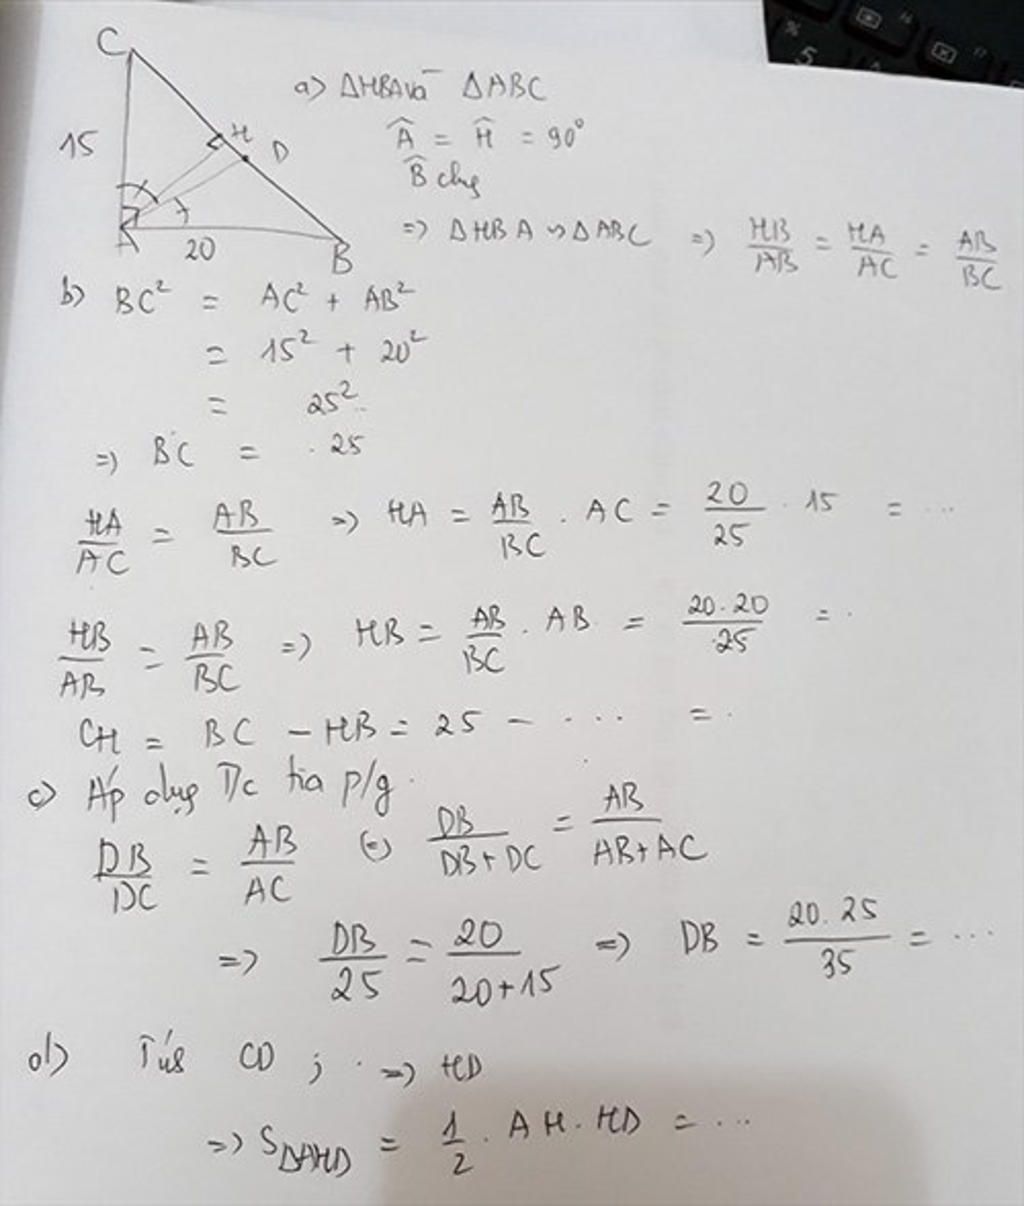 C
15
H
D
A
20
B
a) ΔHBA và ΔABC
Â = Ĥ = 90°
B̂ chg
=> ΔHBA ∽ ΔABC => HB/AB = HA/AC = AB/BC
b) BC² = AC² + AB²
= 15² + 20²
= 25²
=> BC = 25
HA/AC = AB/BC => HA = AB/BC . AC = 20/25 . 15 = ...
HB/AB = AB/BC => HB = AB/BC . AB = 20.20/25 = .
CH = BC - HB = 25 - .... = .
c) Áp dụg T/c tia p/g
DB/DC = AB/AC (=) DB/DB+DC = AB/AB+AC
=> DB/25 = 20/20+15 => DB = 20.25/35 = ...
d) CD ; . => HD
=> SΔAHD = 1/2 . AH . HD = ...
%
5